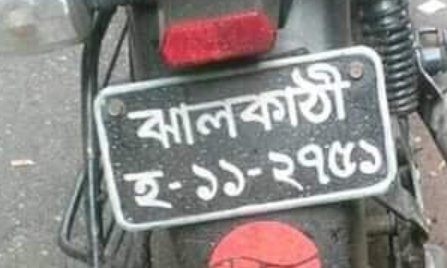 ঝালকাঠী
হ-১১-২৭৫১